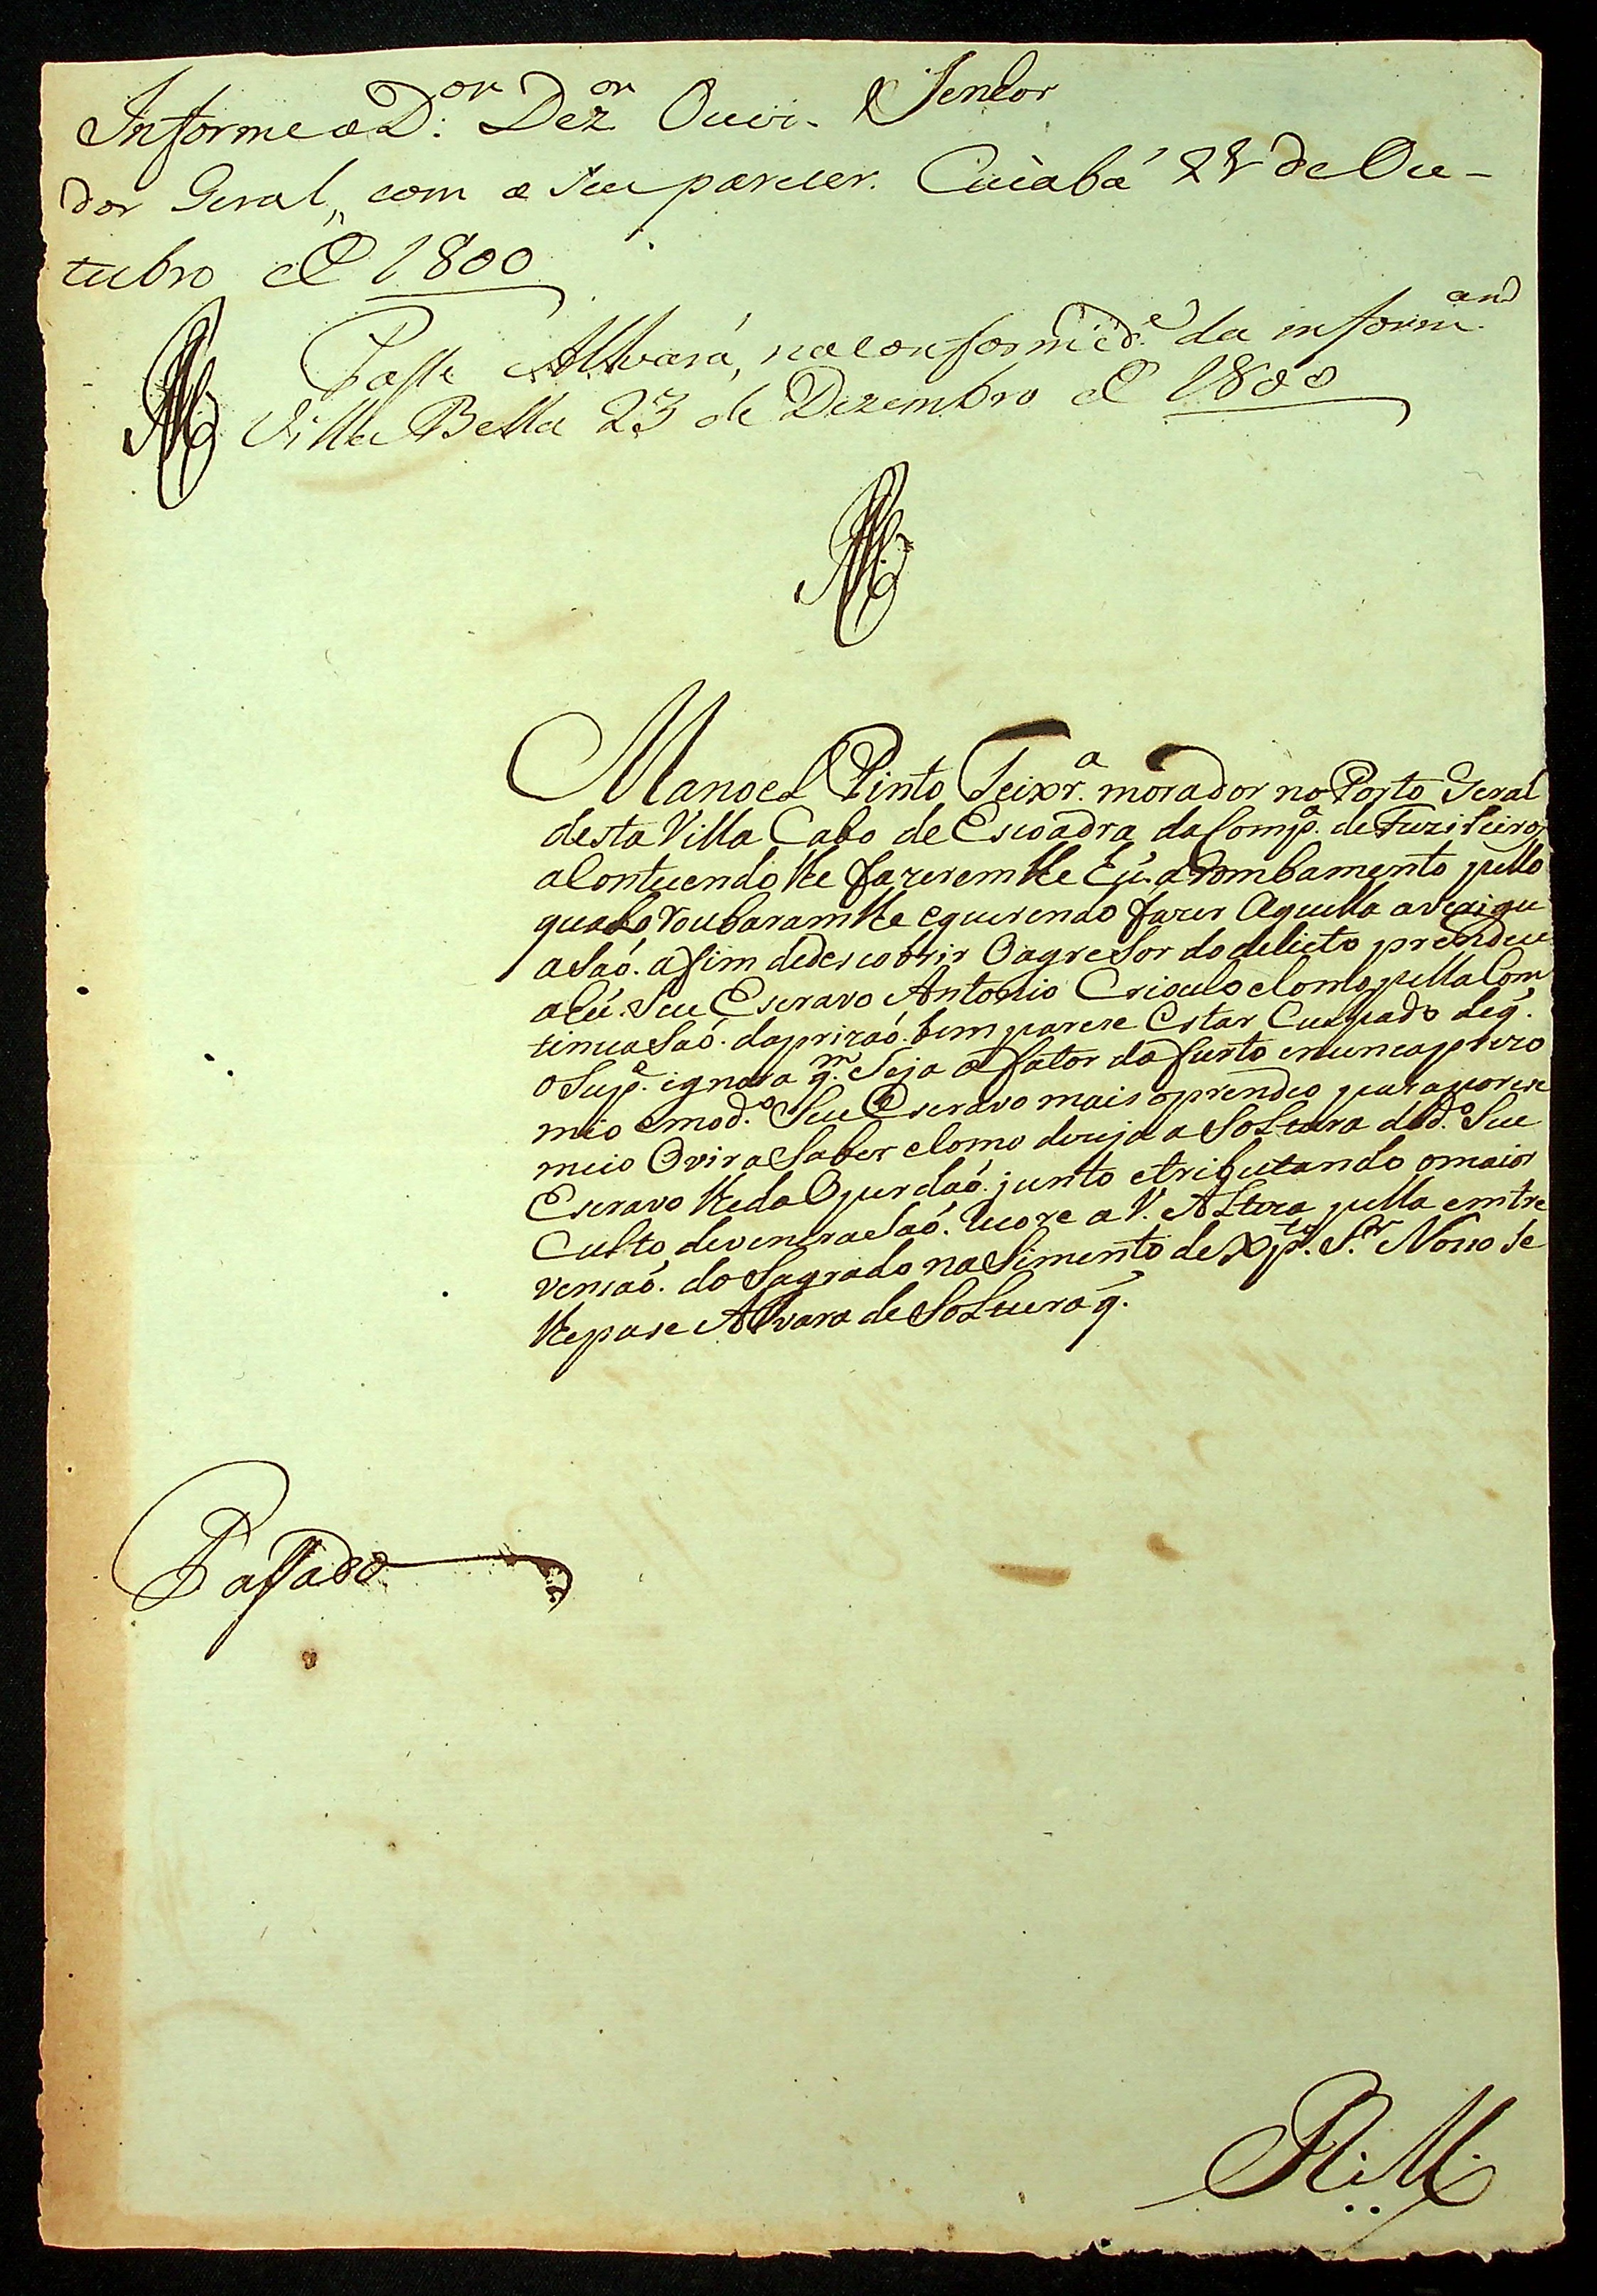 Informe o D.or Dez.or Ouvi-
Senhor
dor Geral,, com o seu parecer. Cuiabá 28 de Ou-
tubro de 1800
Passe Alvará, na conformid.e da inform.
Villa Bella 23 de Dezembro de 1800
Manoel Pinto Teixr.a morador no Porto Geral
desta Villa Cabo de Escoadra da Comp.a de Fuzileiros
a Contecendo lhe fazerem lhe hũ. a Rombamento pello
qual o roubaram lhe e querendo fazer Aquella aveaigu
asaó. afim dedescobrir O agresor do delicto prendeu
a hũ. Seu Escravo Antonio Crioulo e Como pella Com
tinuasaó. da prizaó. bem parese Estar Culpado de q̃.
o Sup.e ignora q.m Seja o fator do furto e nunca prezo
mio e mod.o Seu Escravo mais o prendeo para por ese
meio O vir a Saber e Como deseja a Soltura do d.o Seu
Escravo lhe da O perdaó. junto e tributando o maior
Culto, devenerasaó. a V. Alteza pella entre
vensaó. do Sagrado nasimento de Xp.to S.r Noso se
lhe pase Alvara de Soltura q̃.
Passado
R. M.